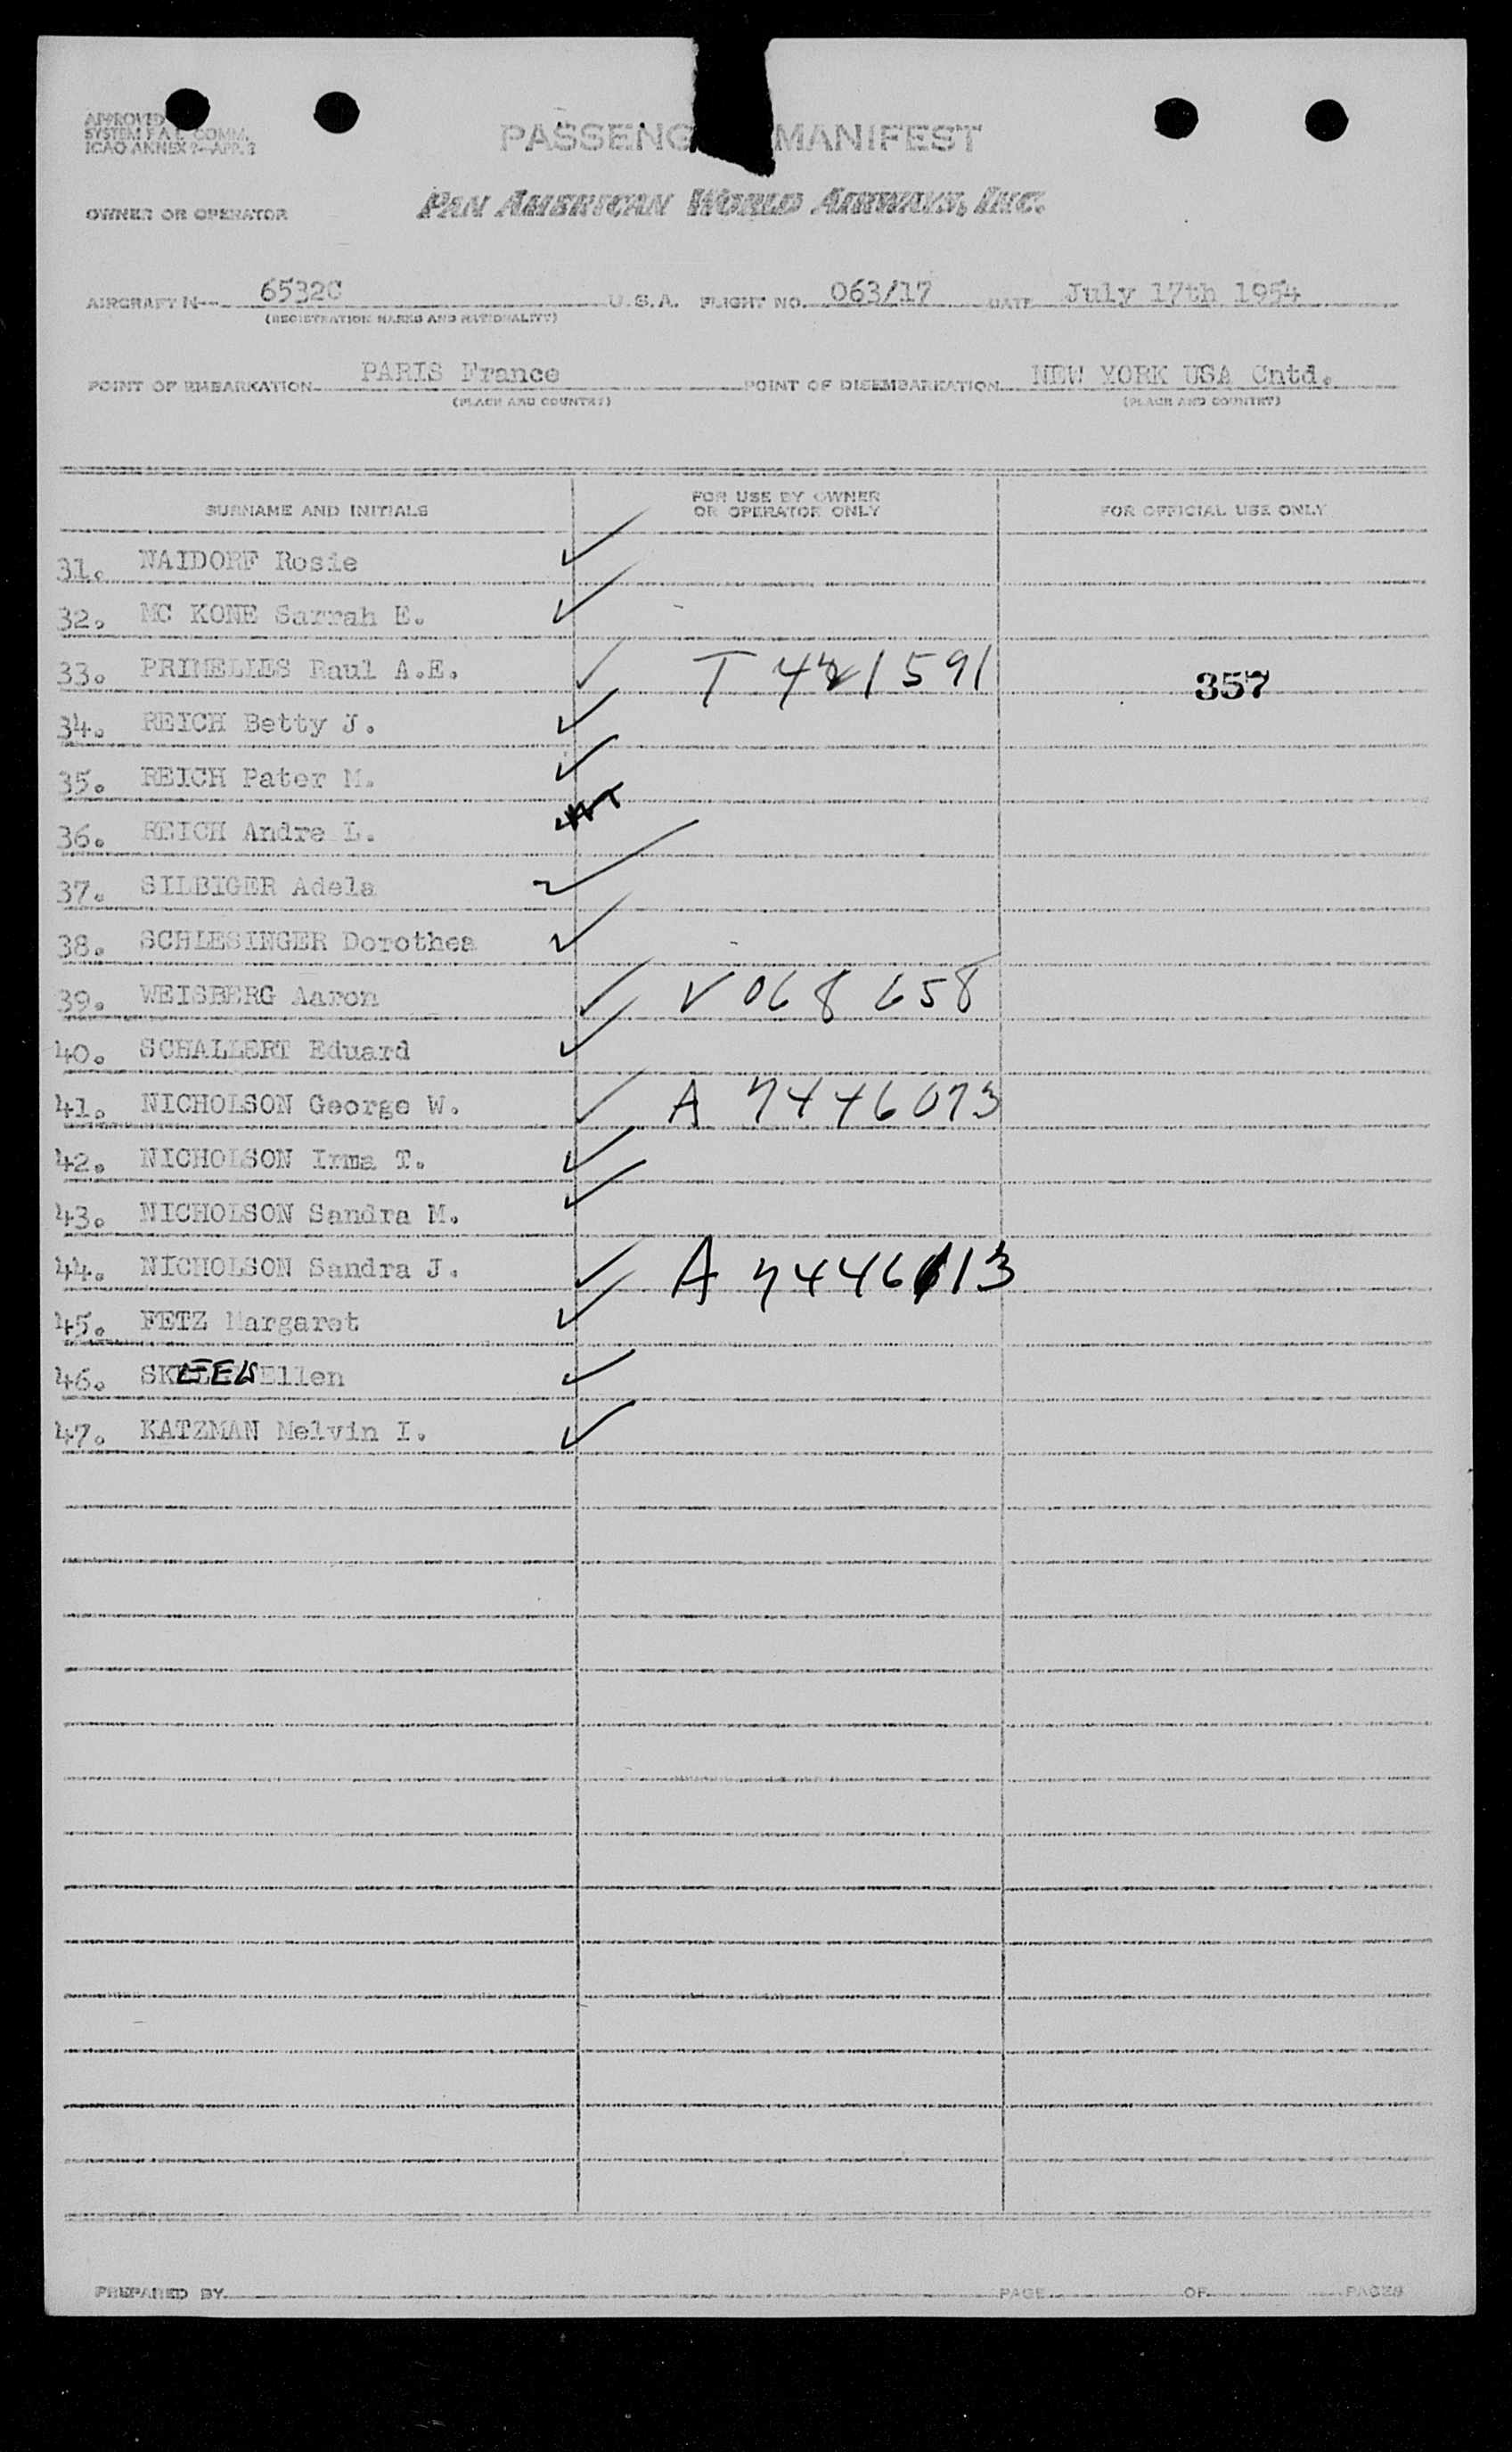 APPROVED
SYSTEM F A L COMM.
ICAO ANNEX 9-APP. 3
PASSENG MANIFEST
OWNER OR OPERATOR PAN AMERICAN WORLD AIRWAYS, INC.
AIRCRAFT N- 6532C U.S.A. FLIGHT NO. 063/17 DATE July 17th 1954
(REGISTRATION MARKS AND NATIONALITY)
POINT OF EMBARKATION PARIS France POINT OF DISEMBARKATION NEW YORK USA Cntd.
(PLACE AND COUNTRY) (PLACE AND COUNTRY)
SURNAME AND INITIALS FOR USE BY OWNER OR OPERATOR ONLY FOR OFFICIAL USE ONLY
31. NAIDORF Rosie ✓
32. MC KONE Sarrah E. ✓
33. PRIMELLES Raul A.E. ✓ T 421591 357
34. REICH Betty J. ✓
35. REICH Pater M. ✓
36. REICH Andre L.
37. SILBIGER Adela ✓
38. SCHLESINGER Dorothea ✓
39. WEISBERG Aaron ✓ V 068 658
40. SCHALLERT Eduard ✓
41. NICHOLSON George W. ✓ A 7446073
42. NICHOLSON Irma T. ✓
43. NICHOLSON Sandra M. ✓
44. NICHOLSON Sandra J. ✓ A 7446113
45. FETZ Margaret ✓
46. SKEEW Ellen ✓
47. KATZMAN Melvin I. ✓
PREPARED BY PAGE OF PAGES